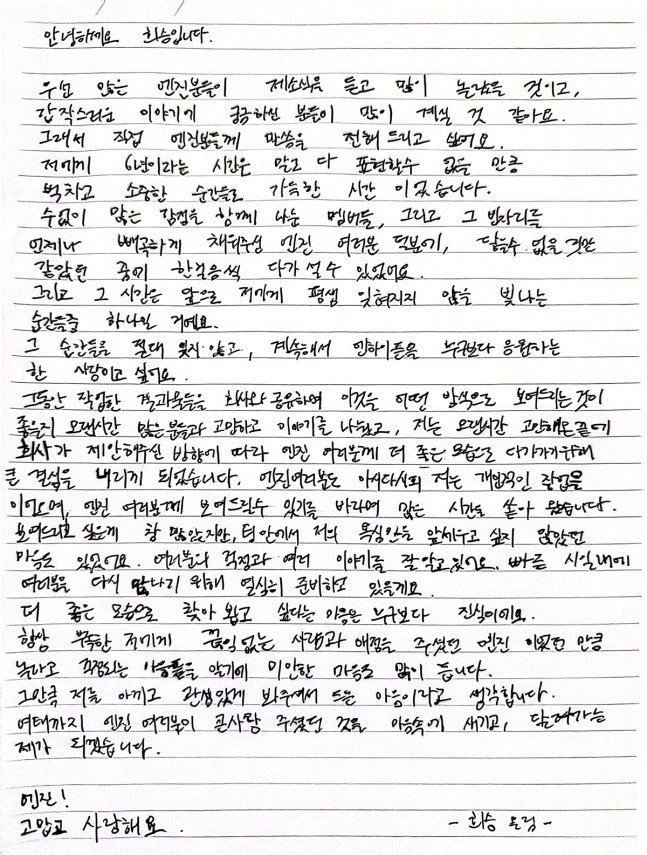 안녕하세요 희승입니다.
우선 많은 엔진분들이 제소식을 듣고 많이 놀랐을 것이고,
갑작스러운 이야기에 궁금하신 분들이 많이 계실 것 같아요.
그래서 직접 엔진분들께 말씀을 전해 드리고 싶어요.
저에게 6년이라는 시간은 말로 다 표현할수 없을 만큼
벅차고 소중한 순간들로 가득한 시간 이었습니다.
수없이 많은 감정을 함께 나눈 멤버들, 그리고 그 빈자리를
언제나 빼곡하게 채워주신 엔진 여러분 덕분에, 닿을수 없을 것만
같았던 꿈에 한걸음씩 다가 설 수 있었어요.
그리고 그 시간은 앞으로 저에게 평생 잊혀지지 않을 빛나는
순간들중 하나일 거예요.
그 순간들을 절대 잊지 않고, 계속해서 엔하이픈을 누구보다 응원하는
한 사람이고 싶어요.
그동안 작업한 결과물들을 회사와 공유하며 이것을 어떤 방식으로 보여드리는것이
좋을지 오랜시간 많은분들과 고민하고 이야기를 나눴고, 저는 오랜시간 고민해온끝에
회사가 제안해주신 방향에 따라 엔진 여러분께 더 좋은모습으로 다가가기위해
큰 결심을 내리게 되었습니다. 엔진여러분도 아시다시피 저는 개인적인 작업을
이어오며, 엔진 여러분께 보여드릴수 있기를 바라며 많은 시간을 쏟아 왔습니다.
보여드리고 싶은게 참 많았지만, 팀 안에서 저의 욕심만을 앞세우고 싶지 않았던
마음도 있었어요. 여러분의 걱정과 여러 이야기를 잘 알고 있어요. 빠른 시일내에
여러분을 다시 만나기 위해 열심히 준비하고 있을게요.
더 좋은 모습으로 찾아 뵙고 싶다는 마음은 누구보다 진심이에요.
항상 부족한 저에게 끊임 없는 사랑과 애정을 주셨던 엔진 이었던 만큼
놀라고 걱정되는 마음들을 알기에 미안한 마음도 많이 듭니다.
그만큼 저를 아끼고 관심있게 봐주셔서 드는 마음이라고 생각합니다.
여태까지 엔진 여러분이 큰사랑 주셨던 것을 마음속에 새기고, 달려가는
제가 되겠습니다.
엔진!
고맙고 사랑해요.
- 희승 드림 -